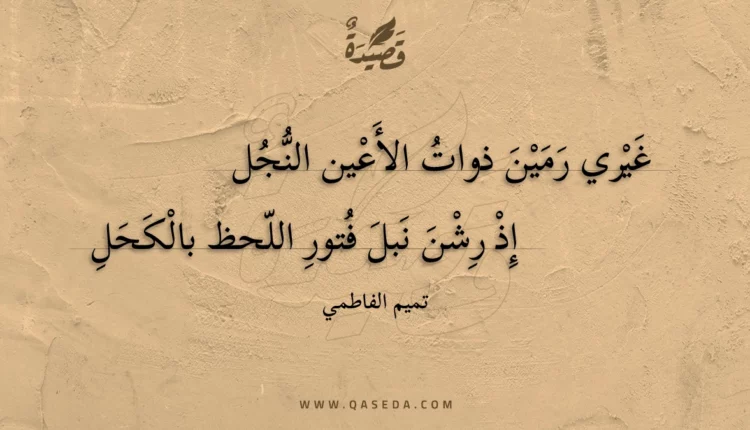 قَصِيدَةٌ
غَيْري رَمَيْنَ ذواتُ الأَعْين النُّجُل
إِذْ رِشْنَ نَبلَ فُتورِ اللّحظ بالْكَحَلِ
تميم الفاطمي
WWW.QASEDA.COM